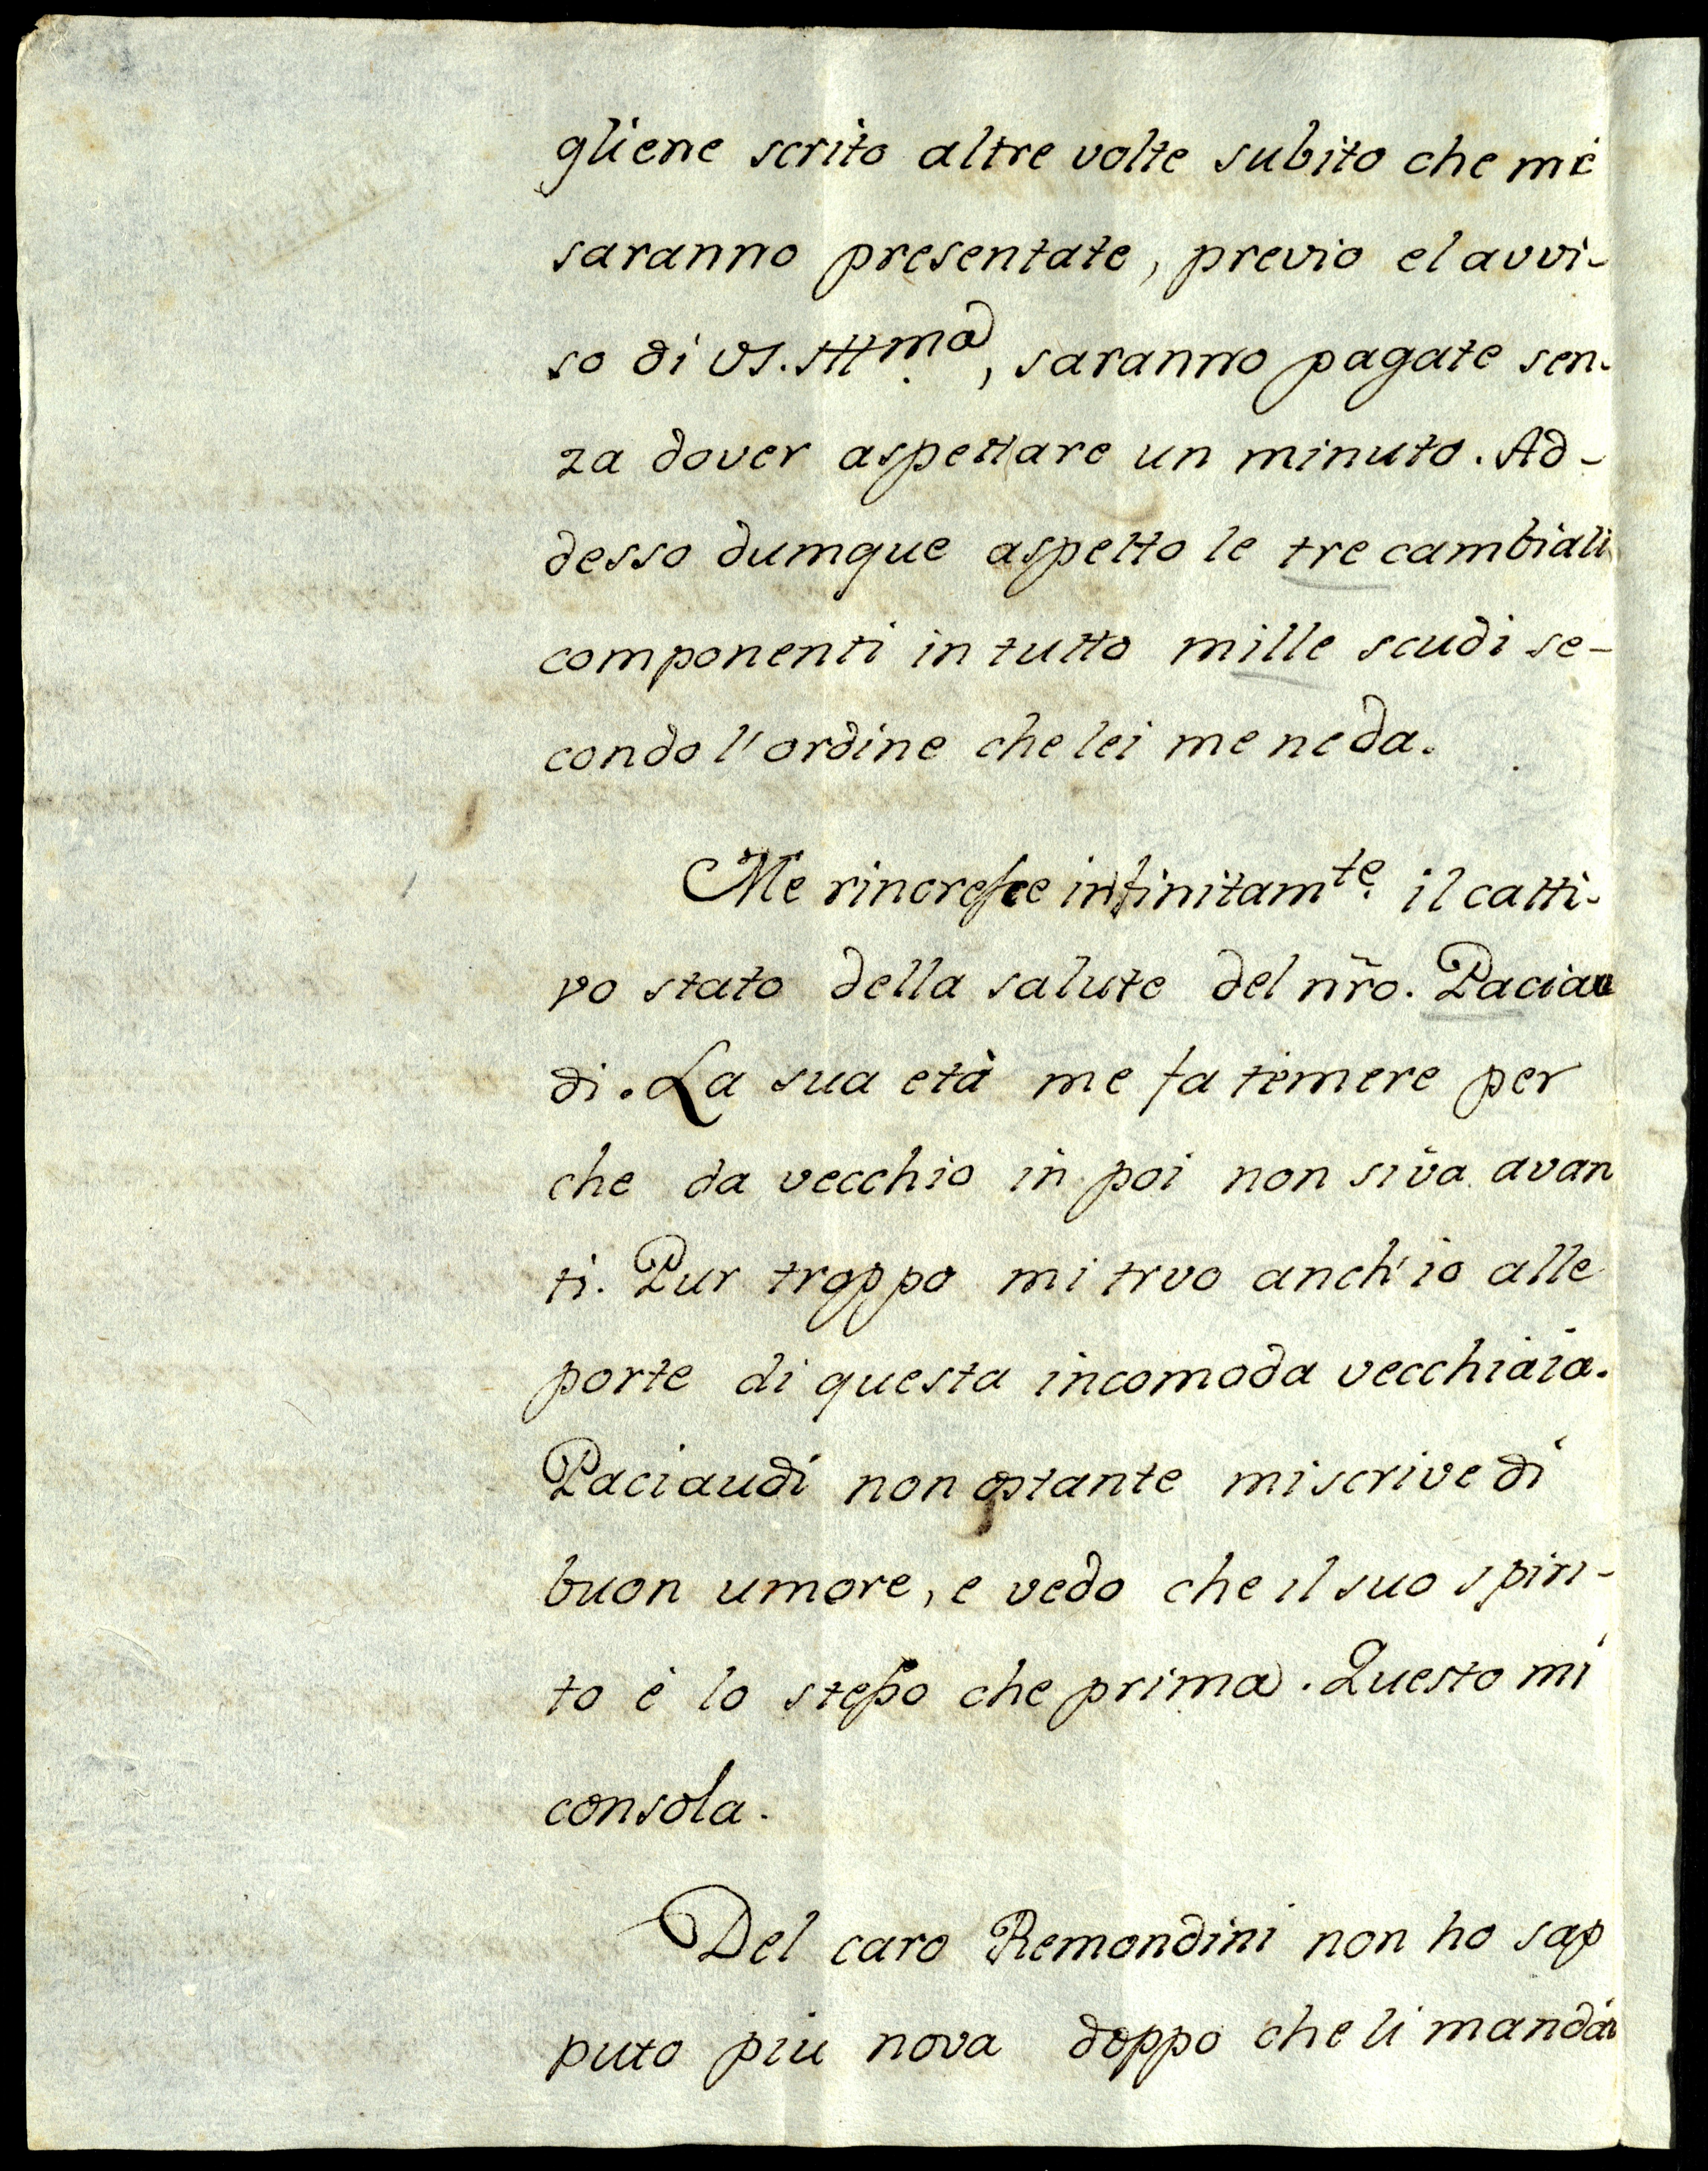 gliene scrito altre volte subito che mi
saranno presentate, previo el avvi-
so di VS. Illma, saranno pagate sen-
za dover aspettare un minuto. Ad-
desso dumque aspetto le tre cambiali
componenti in tutto mille scudi se-
condo l'ordine che lei me ne da.
Me rincresce infinitamte. il catti-
vo stato della salute del nro. Paciau
di. La sua età me fa temere per
che da vecchio in poi non si va avan
ti. Pur troppo mi trvo anch'io alle
porte di questa incomoda vecchiaia.
Paciaudi non ostante mi scrive di
buon umore, e vedo che il suo spiri-
to è lo stesso che prima. Questo mi
consola.
Del caro Remondini non ho sap
puto piu nova doppo che li mandai